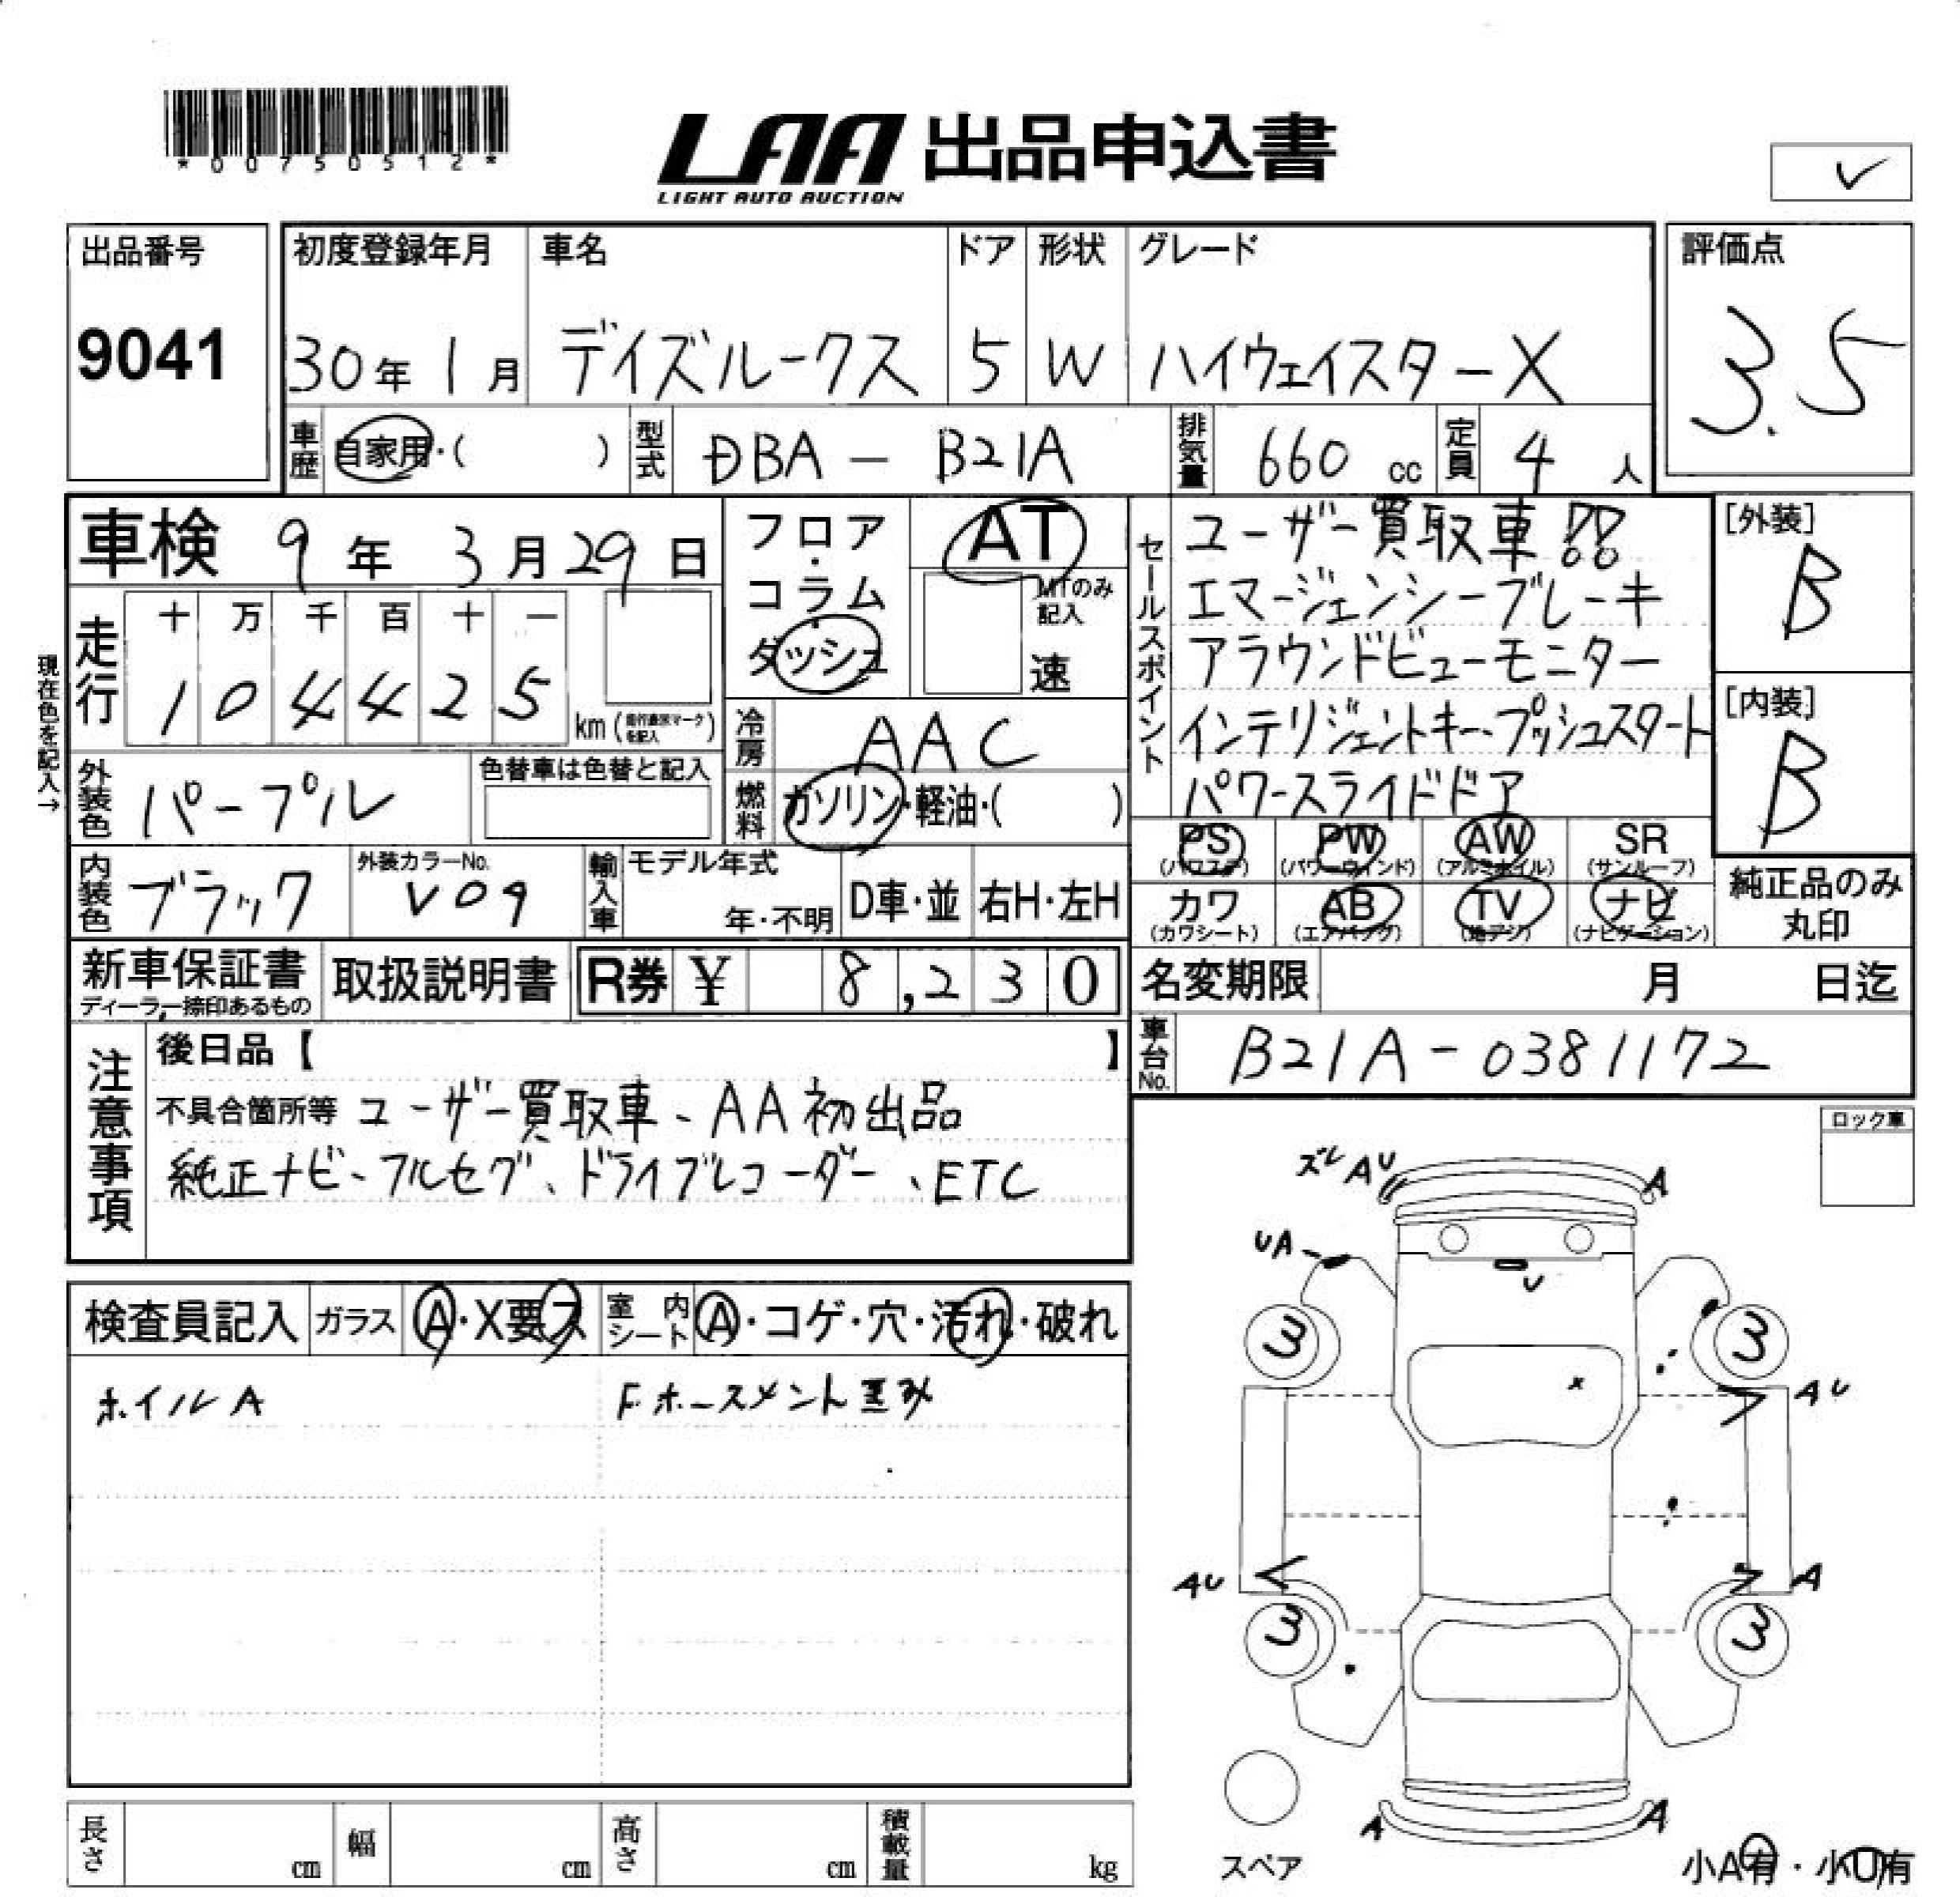 *00750512*
LAA 出品申込書
LIGHT AUTO AUCTION
出品番号
9041
初度登録年月
30年1月
車名
デイズルークス
ドア
5
形状
W
グレード
ハイウェイスターX
評価点
3.5
車歴
自家用・( )
型式
DBA - B21A
排気量
660 cc
定員
4 人
車検 9年3月29日
フロア・コラム・ダッシュ
AT
MTのみ記入
速
現在色を記入→
走行
十 万 千 百 十 一
1 0 4 4 2 5
km
冷房
AAC
燃料
ガソリン・軽油・( )
外装色
パープル
色替車は色替と記入
内装色
ブラック
外装カラーNo.
V09
輸入車
モデル年式
年・不明
D車・並
右H・左H
セールスポイント
ユーザー買取車!!
エマージェンシーブレーキ
アラウンドビューモニター
インテリジェントキー、プッシュスタート
パワースライドドア
[外装]
B
[内装]
B
PS (パワステ)
PW (パワーウィンド)
AW (アルミホイル)
SR (サンルーフ)
カワ (カワシート)
AB (エアバッグ)
TV (地デジ)
ナビ (ナビゲーション)
純正品のみ丸印
新車保証書
ディーラー捺印あるもの
取扱説明書
R券 ¥ 8,230
名変期限 月 日迄
車台No.
B21A-0381172
注意事項
後日品【 】
不具合箇所等 ユーザー買取車、AA初出品
純正ナビ、フルセグ、ドライブレコーダー、ETC
検査員記入
ガラス
A・X要ス
室内シート
A・コゲ・穴・汚れ・破れ
ホイルA
F.ホースメント歪み
ロック車
ズレ AU
A
UA
U
3
3
x
AU
AU
A
3
3
A
A
スペア
小A有・小U有
長さ cm
幅 cm
高さ cm
積載量 kg